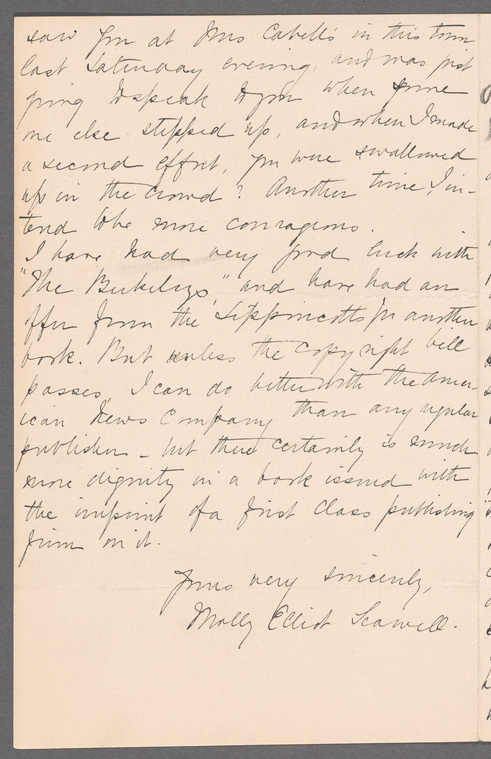 saw you at Mrs Cabell's in this town
last Saturday evening, and was just
going to speak to you when some
one else stepped up, and when I made
a second effort, you were swallowed
up in the crowd? Another time, I in-
tend to be more courageous.
I have had very good luck with
"The Berkeleys" and have had an
offer from the Lippincotts for another
book. But unless the copyright bill
passes, I can do better with the Amer-
ican News Company than any regular
publisher – but there certainly is much
more dignity in a book issued with
the imprint of a first class publishing
firm on it.
Yours very sincerely,
Molly Elliot Seawell.